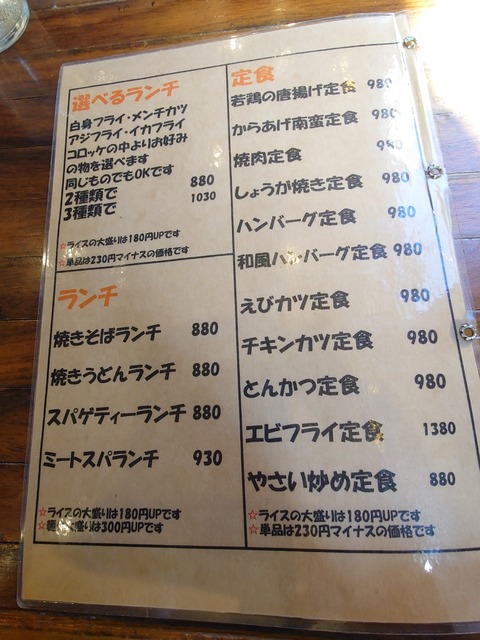 選べるランチ
白身フライ・メンチカツ
アジフライ・イカフライ
コロッケの中よりお好み
の物を選べます
同じものでもOKです
2種類で 880
3種類で 1030
☆ライスの大盛りは180円UPです
☆単品は230円マイナスの価格です
ランチ
焼きそばランチ 880
焼きうどんランチ 880
スパゲティーランチ 880
ミートスパランチ 930
☆ライスの大盛りは180円UPです
☆麺の大盛りは300円UPです
定食
若鶏の唐揚げ定食 980
からあげ南蛮定食 980
焼肉定食 980
しょうが焼き定食 980
ハンバーグ定食 980
和風ハンバーグ定食 980
えびカツ定食 980
チキンカツ定食 980
とんかつ定食 980
エビフライ定食 1380
やさい炒め定食 880
☆ライスの大盛りは180円UPです
☆単品は230円マイナスの価格です